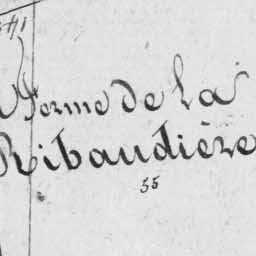 Ferme de la
Ribaudière
55